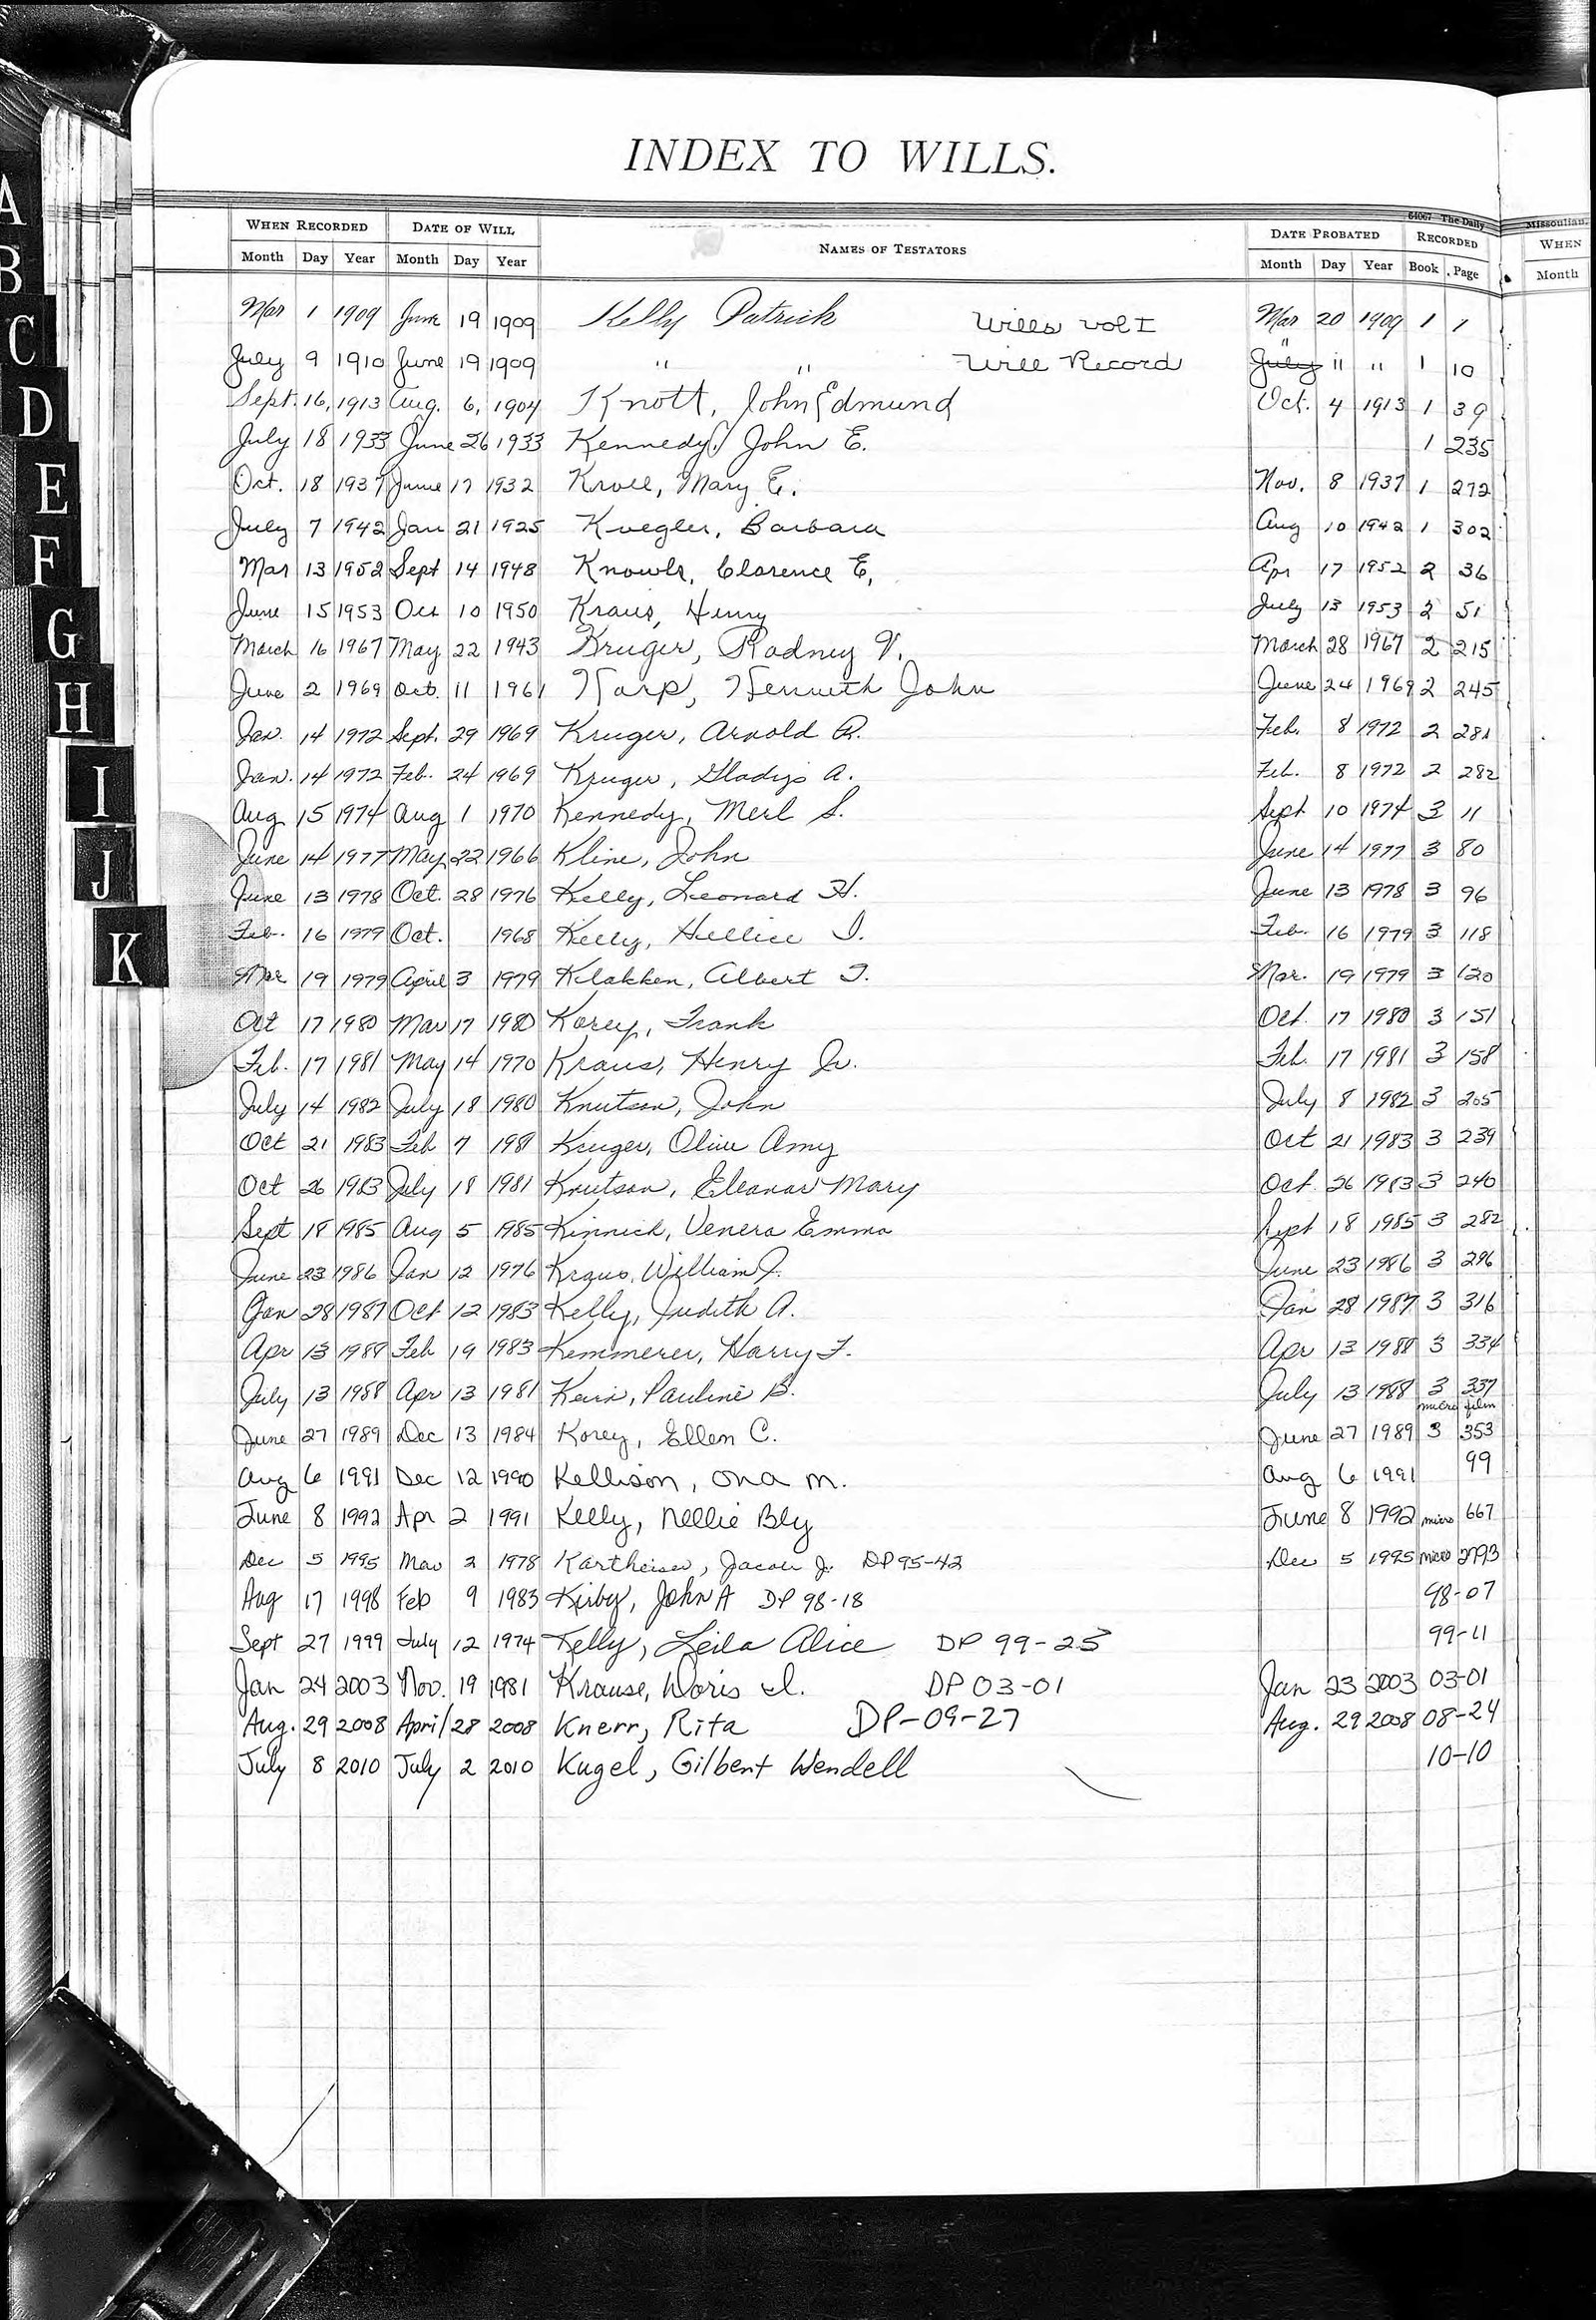 INDEX TO WILLS.
64067 The Daily Missoulian.
WHEN RECORDED DATE OF WILL NAMES OF TESTATORS DATE PROBATED RECORDED WHEN
Month Day Year Month Day Year Month Day Year Book Page Month
Mar 1 1909 June 19 1909 Kelly Patrick Wills Vol I Mar 20 1909 1 1
July 9 1910 June 19 1909 " " Will Record July " " " 1 10
Sept. 16, 1913 Aug. 6, 1904 Knott, John Edmund Oct. 4 1913 1 39
July 18 1933 June 26 1933 Kennedy, John E. 1 235
Oct. 18 1937 June 17 1932 Kroll, Mary E. Nov. 8 1937 1 272
July 7 1942 Jan 21 1925 Kuegler, Barbara Aug 10 1942 1 302
Mar 13 1952 Sept 14 1948 Knowls, Clarence E, Apr 17 1952 2 36
June 15 1953 Oct 10 1950 Kraus, Henry July 13 1953 2 51
March 16 1967 May 22 1943 Kruger, Rodney V. March 28 1967 2 215
June 2 1969 Oct. 11 1961 Karp, Kenneth John June 24 1969 2 245
Jan. 14 1972 Sept. 29 1969 Kruger, Arnold R. Feb. 8 1972 2 281
Jan. 14 1972 Feb. 24 1969 Kruger, Gladys A. Feb. 8 1972 2 282
Aug 15 1974 Aug 1 1970 Kennedy, Merl S. Sept. 10 1974 3 11
June 14 1977 May 22 1966 Kline, John June 14 1977 3 80
June 13 1978 Oct. 28 1976 Kelly, Leonard H. June 13 1978 3 96
Feb. 16 1979 Oct. 1968 Kelly, Hellice I. Feb. 16 1979 3 118
Mar 19 1979 April 3 1979 Klakken, Albert T. Mar. 19 1979 3 120
Oct 17 1980 Mar 17 1980 Korey, Frank Oct. 17 1980 3 151
Feb. 17 1981 May 14 1970 Kraus, Henry Jr. Feb. 17 1981 3 158
July 14 1982 July 18 1980 Knutson, John July 8 1982 3 205
Oct 21 1983 Feb 7 1981 Kruger, Olive Amy Oct 21 1983 3 239
Oct 26 1983 July 18 1981 Knutson, Eleanor Mary Oct. 26 1983 3 240
Sept 18 1985 Aug 5 1985 Kinnick, Venera Emma Sept 18 1985 3 282
June 23 1986 Jan 12 1976 Kraus, William J. June 23 1986 3 296
Jan 28 1987 Oct 12 1983 Kelly, Judith A. Jan 28 1987 3 316
Apr 13 1988 Feb 19 1983 Kemmerer, Harry F. Apr 13 1988 3 334
July 13 1988 Apr 13 1981 Pauline B. July 13 1988 3 337
micro film
June 27 1989 Dec 13 1984 Korey, Ellen C. June 27 1989 3 353
Aug 6 1991 Dec 12 1990 Kellison, Ona M. Aug 6 1991 99
June 8 1992 Apr 2 1991 Kelly, Nellie Bly June 8 1992 micro 667
Dec 5 1995 Mar 2 1978 Kartheiser, Jacob J. DP 95-42 Dec 5 1995 micro 2993
Aug 17 1998 Feb 9 1983 Kirby, John A DP 98-18 98-07
Sept 27 1999 July 12 1974 Kelly, Leila Alice DP 99-25 99-11
Jan 24 2003 Nov. 19 1981 Krause, Doris I. DP 03-01 Jan 23 2003 03-01
Aug. 29 2008 April 28 2008 Knerr, Rita DP-09-27 Aug. 29 2008 08-24
July 8 2010 July 2 2010 Kugel, Gilbert Wendell 10-10
A
B
C
D
E
F
G
H
I
J
K